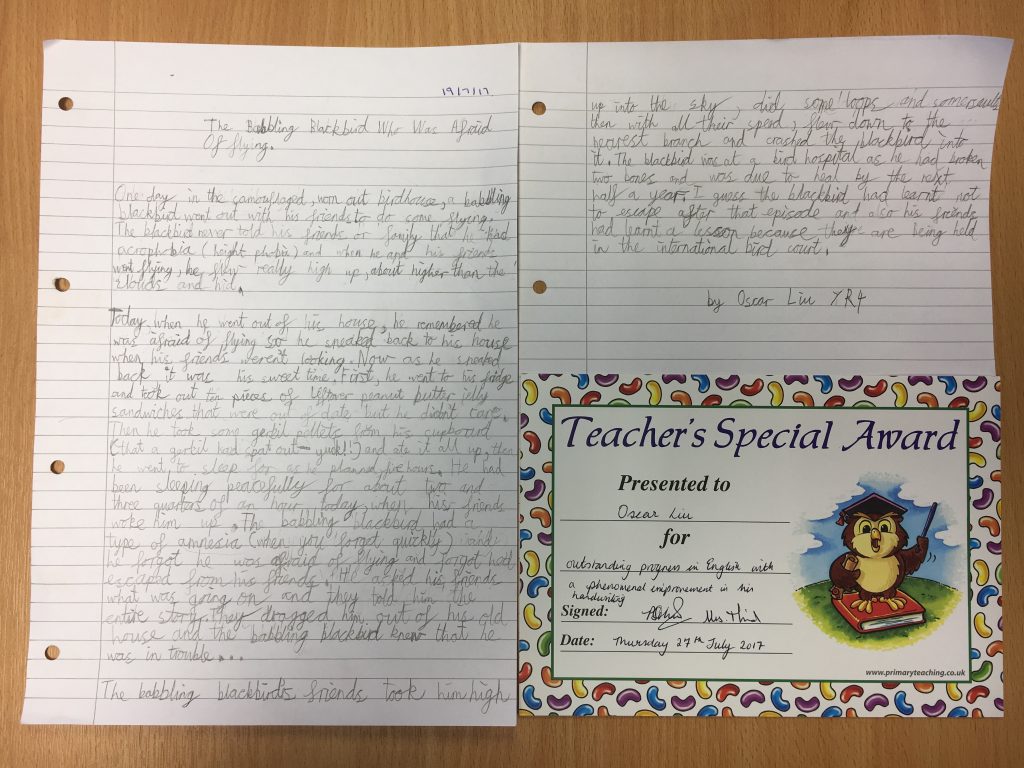 19/7/17
The Babbling Blackbird Who Was Afraid
Of flying.
One day in the camouflaged, worn out birdhouse, a babbling
blackbird went out with his friends to do some flying.
The blackbird never told his friends or family that he had
acrophobia (height phobia) and when he and his friends
went flying, he flew really high up, about higher than the
clouds and hid.
Today, when he went out of his house, he remembered he
was afraid of flying so he sneaked back to his house
when his friends weren't looking. Now as he sneaked
back it was his sweet time. First, he went to his fridge
and took out ten pieces of leftover peanut butter jelly
sandwiches that were out of date but he didn't care.
Then he took some gerbil pellets from his cupboard
(that a gerbil had spat out - yuck!) and ate it all up, then
he went to sleep for as he planned five hours. He had
been sleeping peacefully for about two and
three quarters of an hour today when his friends
woke him up. The babbling blackbird had a
type of amnesia (when you forget quickly) and
he forgot he was afraid of flying and forgot had
escaped from his friends. He asked his friends
what was going on and they told him the
entire story. They dragged him out of his old
house and the babbling blackbird knew that he
was in trouble...
The babbling blackbird's friends took him high
up into the sky, did some loops and somersaults
then with all their speed, flew down to the
nearest branch and crashed the blackbird into
it. The blackbird was at a bird hospital as he had broken
two bones and was due to heal by the next
half a year. I guess the blackbird had learnt not
to escape after that episode and also his friends
had learnt a lesson because they are being held
in the international bird court.
by Oscar Liu YR4
Teacher's Special Award
Presented to
Oscar Liu
for
outstanding progress in English with
a phenomenal improvement in his
handwriting
Signed: Mrs. Thind
Date: Thursday 27th July 2017
www.primaryteaching.co.uk